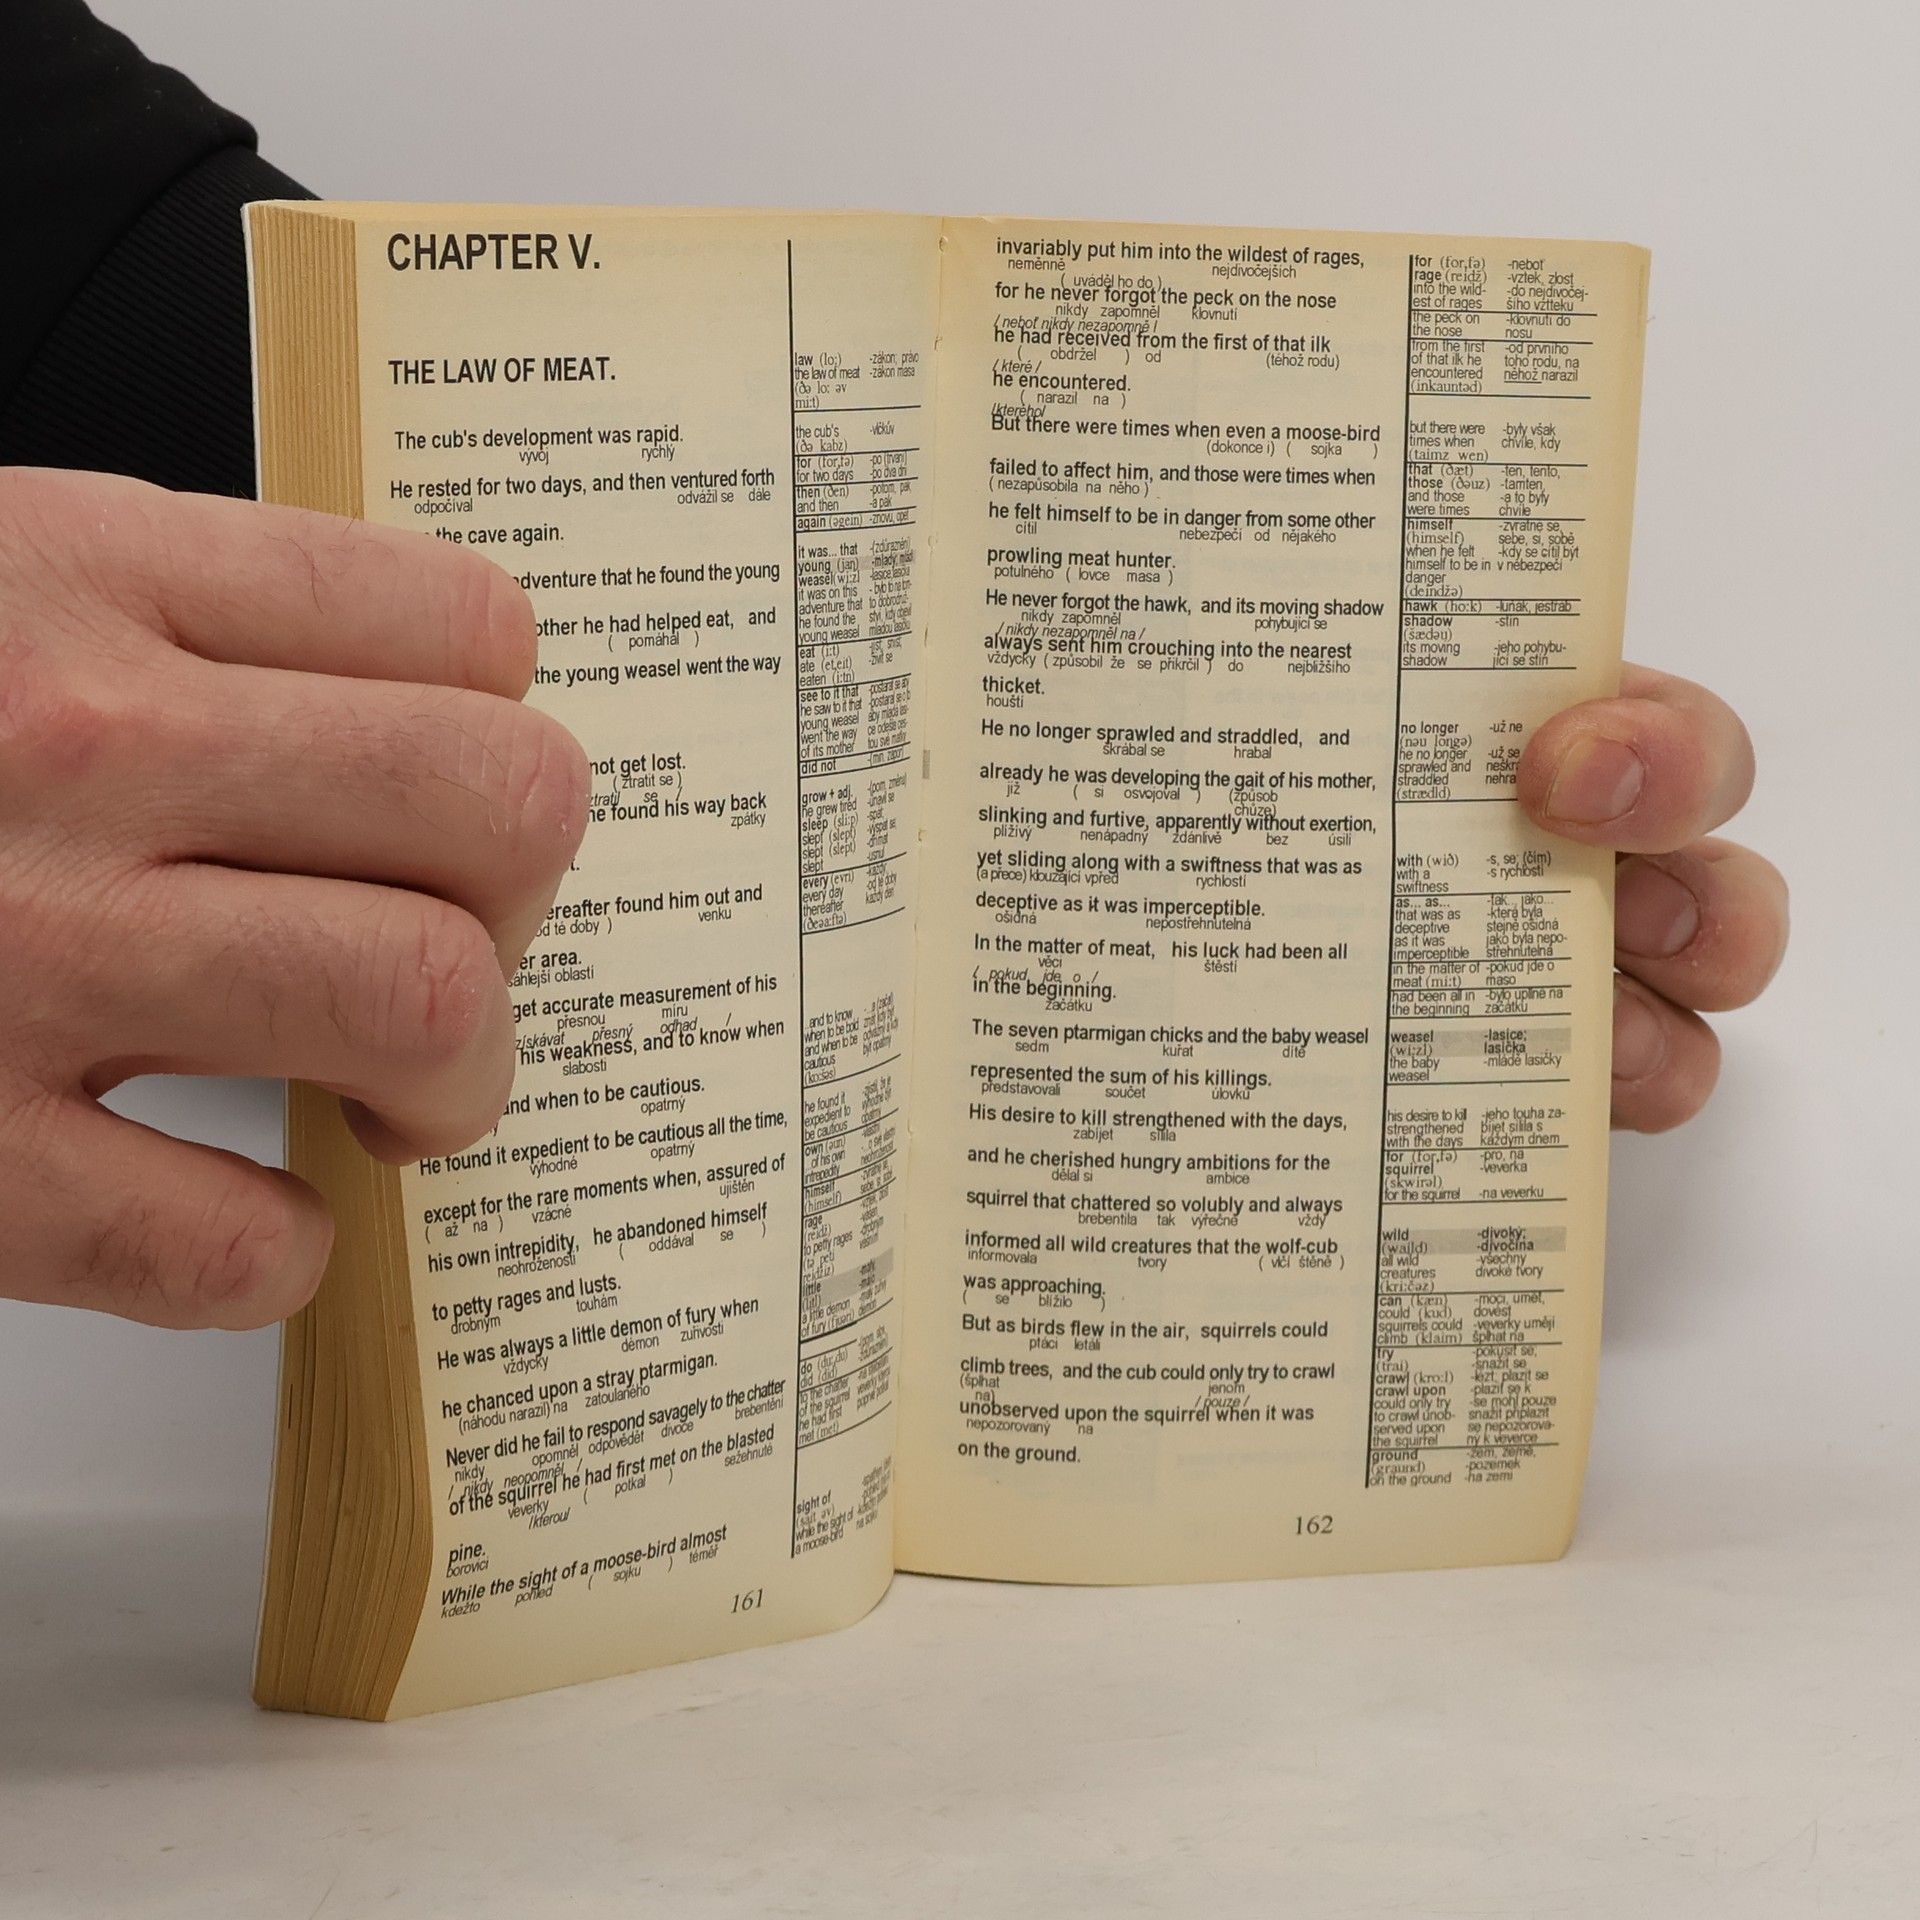 CHAPTER V.
THE LAW OF MEAT.
The cub's development was rapid.
vývoj rychlý
He rested for two days, and then ventured forth
odpočíval odvážil se dále
the cave again.
adventure that he found the young
other he had helped eat, and
( pomáhal )
the young weasel went the way
not get lost.
( ztratit se )
ztratil se /
he found his way back
zpátky
t.
ereafter found him out and
od té doby ) venku
er area.
oblasti
get accurate measurement of his
přesnou míru
získávat přesný odhad /
his weakness, and to know when
slabosti
and when to be cautious.
opatrný
He found it expedient to be cautious all the time,
výhodné opatrný
except for the rare moments when, assured of
( až na ) vzácné ujištěn
his own intrepidity, he abandoned himself
neohroženosti ( oddával se )
to petty rages and lusts.
drobným touhám
He was always a little demon of fury when
vždycky démon zuřivosti
he chanced upon a stray ptarmigan.
(náhodu narazil) na zatoulaného
Never did he fail to respond savagely to the chatter
nikdy opomněl odpovědět divoce brebentění
/ nikdy neopomněl /
of the squirrel he had first met on the blasted
veverky ( potkal ) sežehnuté
/kterou/
pine.
borovici
While the sight of a moose-bird almost
kdežto pohled ( sojku ) téměř
161
law (lo:) -zákon; právo
the law of meat -zákon masa
(ðə lo: əv
mi:t)
the cub's -vlčkův
(ðə kabz)
for (for,fə) -po (trvání)
for two days -po dva dni
then (ðen) -potom, pak
and then -a pak
again (əgein) -znovu, opět
it was... that -(zdůraznění)
young (jaŋ)
weasel (wi:zl
it was on this
adventure that
he found the
young weasel
eat (i:t)
ate (et,eit)
eaten (i:tn)
see to it that
he saw to it that
young weasel
went the way
of its mother
did not
grow + adj.
he grew tired
sleep (sli:p)
slept (slept)
slept (slept)
slept
every (evri)
every day
thereafter
...and to know
when to be bold
and when to be
cautious
he found it
expedient to
be cautious
of his own
intrepidity
himself
(himself)
rage
to petty rages
little
a little demon
of fury
do
did (did)
to the chatter
of the squirrel
he had first
met (met)
sight of
while the sight of
a moose-bird
invariably put him into the wildest of rages,
neměnně nejdivočejších
( uváděl ho do )
for he never forgot the peck on the nose
nikdy zapomněl klovnutí
/ neboť nikdy nezapomně /
he had received from the first of that ilk
( obdržel ) od (téhož rodu)
/ které /
he encountered.
( narazil na )
/kterého/
But there were times when even a moose-bird
(dokonce i) ( sojka )
failed to affect him, and those were times when
( nezapůsobila na něho )
he felt himself to be in danger from some other
cítil nebezpečí od nějakého
prowling meat hunter.
potulného ( lovce masa )
He never forgot the hawk, and its moving shadow
nikdy zapomněl pohybující se
/ nikdy nezapomněl na /
always sent him crouching into the nearest
vždycky ( způsobil že se přikrčil ) do nejbližšího
thicket.
houští
He no longer sprawled and straddled, and
škrábal se hrabal
already he was developing the gait of his mother,
již ( si osvojoval ) (způsob
chůze)
slinking and furtive, apparently without exertion,
plíživý nenápadný zdánlivě bez úsilí
yet sliding along with a swiftness that was as
(a přece) klouzající vpřed rychlostí
deceptive as it was imperceptible.
ošidná nepostřehnutelná
In the matter of meat, his luck had been all
věci štěstí
/ pokud jde o /
in the beginning.
začátku
The seven ptarmigan chicks and the baby weasel
sedm kuřat dítě
represented the sum of his killings.
představovali součet úlovků
His desire to kill strengthened with the days,
zabíjet sílila
and he cherished hungry ambitions for the
dělal si ambice
squirrel that chattered so volubly and always
brebentila tak výřečně vždy
informed all wild creatures that the wolf-cub
informovala tvory ( vlčí štěně )
was approaching.
( se blížilo )
But as birds flew in the air, squirrels could
ptáci létali
climb trees, and the cub could only try to crawl
(šplhat jenom
na) / pouze /
unobserved upon the squirrel when it was
nepozorovaný na
on the ground.
162
for (for,fə) -neboť
rage (reidž) -vztek, zlost
into the wild- -do nejdivočej-
est of rages šího vztteku
the peck on -klovnutí do
the nose nosu
from the first -od prvního
of that ilk he toho rodu, na
encountered něhož narazil
(inkauntəd)
but there were -byly však
times when chvíle, kdy
(taimz wen)
that (ðæt) -ten, tento,
those (ðəuz) -tamten,
and those -a to byly
were times chvíle
himself -zvratné se,
(himself) sebe, si, sobě
when he felt -kdy se cítil být
himself to be in v nebezpečí
danger
(deindžə)
hawk (ho:k) -luňák, jestřáb
shadow -stín
(šædəu)
its moving -jeho pohybu-
shadow jící se stín
no longer -už ne
(nəu longə)
he no longer -už se
sprawled and neškrá
straddled nehra
(strædld)
with (wið) -s, se; (čím)
with a -s rychlostí
swiftness
as... as... -tak... jako...
that was as -která byla
deceptive stejně ošidná
as it was jako byla nepo-
imperceptible střehnutelná
in the matter of -pokud jde o
meat (mi:t) maso
had been all in -bylo úplně na
the beginning začátku
weasel -lasice;
(wi:zl) lasička
the baby -mládě lasičky
weasel
his desire to kill -jeho touha za-
strengthened bíjet sílila s
with the days každým dnem
for (for,fə) -pro, na
squirrel -veverka
(skwirəl)
for the squirrel -na veverku
wild -divoký;
(waild) -divočina
all wild -všechny
creatures divoké tvory
(kri:čəz)
can (kæn) -moci, umět,
could (kud) dovést
squirrels could -veverky umějí
climb (klaim) šplhat na
try -pokusit se;
(trai) -snažit se
crawl (kro:l) -lézt; plazit se
crawl upon -plazit se k
could only try -se mohl pouze
to crawl unob- snažit připlazit
served upon se nepozorova-
the squirrel ný k veverce
ground -zem, země,
(graund) -pozemek
on the ground -na zemi